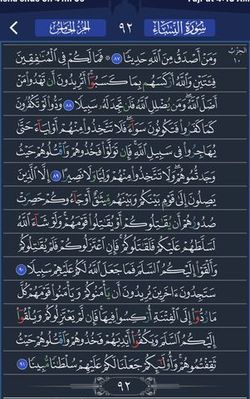 سُورَةُ النِّسَاءِ ٩٢ الجُزْءُ الخَامِسُ
وَمَنْ أَصْدَقُ مِنَ ٱللَّهِ حَدِيثًا ٨٧ ۞ فَمَا لَكُمْ فِي ٱلْمُنَٰفِقِينَ
فِئَتَيْنِ وَٱللَّهُ أَرْكَسَهُم بِمَا كَسَبُوٓا۟ أَتُرِيدُونَ أَن تَهْدُوا۟ مَنْ
أَضَلَّ ٱللَّهُ وَمَن يُضْلِلِ ٱللَّهُ فَلَن تَجِدَ لَهُۥ سَبِيلًا ٨٨ وَدُّوا۟ لَوْ تَكْفُرُونَ
كَمَا كَفَرُوا۟ فَتَكُونُونَ سَوَآءً فَلَا تَتَّخِذُوا۟ مِنْهُمْ أَوْلِيَآءَ حَتَّىٰ
يُهَاجِرُوا۟ فِي سَبِيلِ ٱللَّهِ فَإِن تَوَلَّوْا۟ فَخُذُوهُمْ وَٱقْتُلُوهُمْ حَيْثُ
وَجَدتُّمُوهُمْ وَلَا تَتَّخِذُوا۟ مِنْهُمْ وَلِيًّا وَلَا نَصِيرًا ٨٩ إِلَّا ٱلَّذِينَ
يَصِلُونَ إِلَىٰ قَوْمٍۭ بَيْنَكُمْ وَبَيْنَهُم مِّيثَٰقٌ أَوْ جَآءُوكُمْ حَصِرَتْ
صُدُورُهُمْ أَن يُقَٰتِلُوكُمْ أَوْ يُقَٰتِلُوا۟ قَوْمَهُمْ وَلَوْ شَآءَ ٱللَّهُ
لَسَلَّطَهُمْ عَلَيْكُمْ فَلَقَٰتَلُوكُمْ فَإِنِ ٱعْتَزَلُوكُمْ فَلَمْ يُقَٰتِلُوكُمْ
وَأَلْقَوْا۟ إِلَيْكُمُ ٱلسَّلَمَ فَمَا جَعَلَ ٱللَّهُ لَكُمْ عَلَيْهِمْ سَبِيلًا ٩٠
سَتَجِدُونَ ءَاخَرِينَ يُرِيدُونَ أَن يَأْمَنُوكُمْ وَيَأْمَنُوا۟ قَوْمَهُمْ كُلَّ
مَا رُدُّوٓا۟ إِلَى ٱلْفِتْنَةِ أُرْكِسُوا۟ فِيهَا فَإِن لَّمْ يَعْتَزِلُوكُمْ وَيُلْقُوٓا۟
إِلَيْكُمُ ٱلسَّلَمَ وَيَكُفُّوٓا۟ أَيْدِيَهُمْ فَخُذُوهُمْ وَٱقْتُلُوهُمْ حَيْثُ
ثَقِفْتُمُوهُمْ وَأُو۟لَٰٓئِكُمْ جَعَلْنَا لَكُمْ عَلَيْهِمْ سُلْطَٰنًا مُّبِينًا ٩١
الحِزْبُ
١٠
٩٢